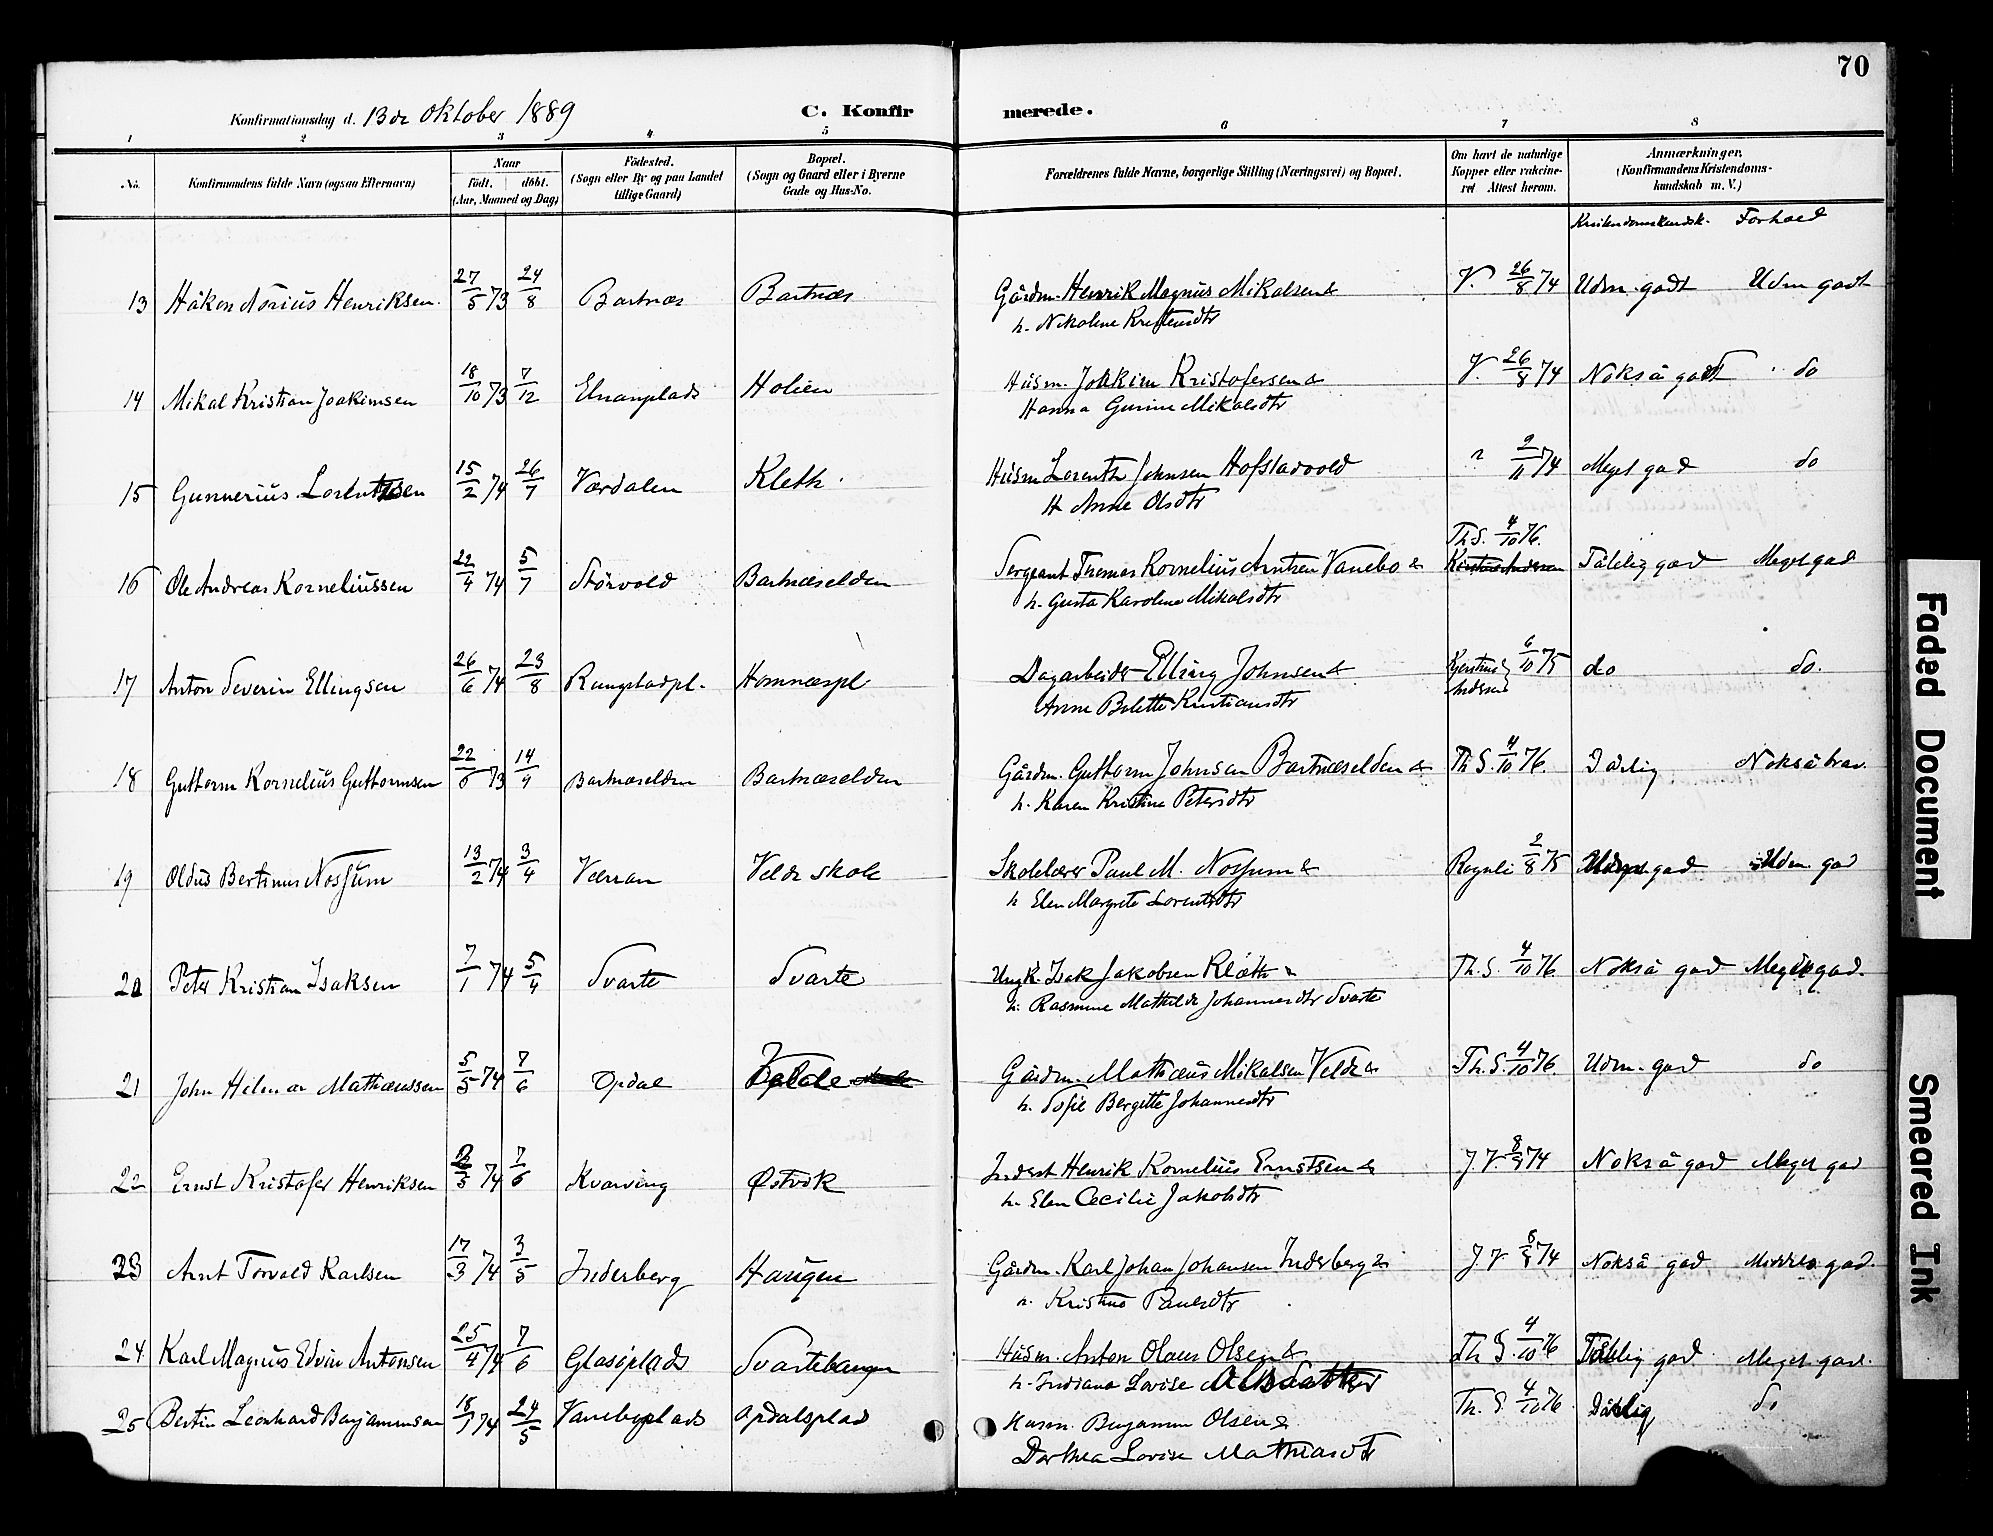 70
Konfirmationsdag d. 13de Oktober 1889 C. Konfirmerede.
1 2 3 4 5 6 7 8
No. Konfirmandens fulde Navn (ogsaa Efternavn) Naar födt. döbt. (Aar, Maaned og Dag) Födested. (Sogn eller By og paa Landet tillige Gaard) Bopæl. (Sogn og Gaard eller i Byerne Gade og Hus-No. Forældrenes fulde Navne, borgerlige Stilling (Næringsvei) og Bopæl. Om havt de naturlige Kopper eller vakcineret Attest herom. Anmærkninger. (Konfirmandens Kristendomskundskab m. V.)
Kristendomskundsk. Forhold
13 Håkon Nórius Henriksen 27/5 73 24/8 Bartnæs Bartnæs Gårdm. Henrik Magnus Mikalsen & V. 26/8 74 Udm. godt Udm godt
h. Nikoline Kristensdtr
14 Mikal Kristian Joakimsen 18/10 73 7/12 Elnanplads Holien Húsm. Joakim Kristofersen & V. 26/8 74 Nokså godt do
Hanna Gurine Mikalsdtr
15 Gunnerius Lorentsen 15/2 74 26/7 Værdalen Kleth Húsm Lorents Johnsen Hofstadvold ? 2/11 74 Meget god do
H Anne Olsdtr
16 Ole Andreas Korneliussen 22/4 74 5/7 Störvold Bartnæselden Sergeant Thomas Kornelius Arntsen Vanebo & Th. S. 4/10 76. Tålelig god Meget god
h. Gusta Karoline Mikalsdtr
17 Anton Severin Ellingsen 26/6 74 23/8 Rungstadpl. Homnæspl Dagarbeider Elling Johnsen & Andersen 6/10 75 do do.
Anne Bolette Kristiansdtr
18 Guttorm Kornelius Guttormsen 22/5 73 14/4 Bartnæselden Bartnæselden Gårdm. Guttorm Johnsen Bartnæselden & Th S. 4/10 76. Dårlig Nokså brav
h. Karen Kristine Petersdtr
19 Oldus Bertinus Nossúm 13/2 74 3/4 Værran Velde skole Skolelærer Paul M. Nossum & Rognli 2/8 75 god Udm. god
h Elen Margrete Lorentsdtr
20 Peter Kristian Isaksen 7/1 74 5/4 Svarte Svarte Ungk. Isak Jakobsen Klæth & Th. S. 4/10 76 Nokså god Meget god.
h. Rasmine Mathilde Johannesdtr Svarte
21 John Hilmar Mathæussen 5/5 74 7/6 Opdal Gårdm. Mathæus Mikalsen Velde & Th. S. 4/10 76. Udm. god do
h. Sofie Bergitte Johannesdtr
22 Ernst Kristofer Henriksen 2/5 74 7/6 Kvarving Østvik Inderst Henrik Kornelius Ernstsen & J. V. 8/9 74 Nokså god Meget god
h. Elen Cecilie Jakobsdtr
23 Arnt Torvald Karlsen 17/3 74 3/5 Inderberg Haugen Gårdm. Karl Johan Johansen Inderberg & J V 8/9 74 Nokså god Middels god.
h. Kristine Paulsdtr
24. Karl Magnus Edvin Antonsen 25/4 74 7/6 Glasöplads Svartehaugen Húsm. Anton Olaus Olsen & Th S. 4/10 76 Tålelig god Meget god.
h. Indiana Lovise
25 Bertin Leonhard Benjaminsen 18/1 74 24/5 Vaneboplads Opdalsplad Húsm. Benjamin Olsen & Th. S. 4/10 76 Dårlig do
Dorthea Lovise Mathiasdtr
Faded Document
Smeared Ink